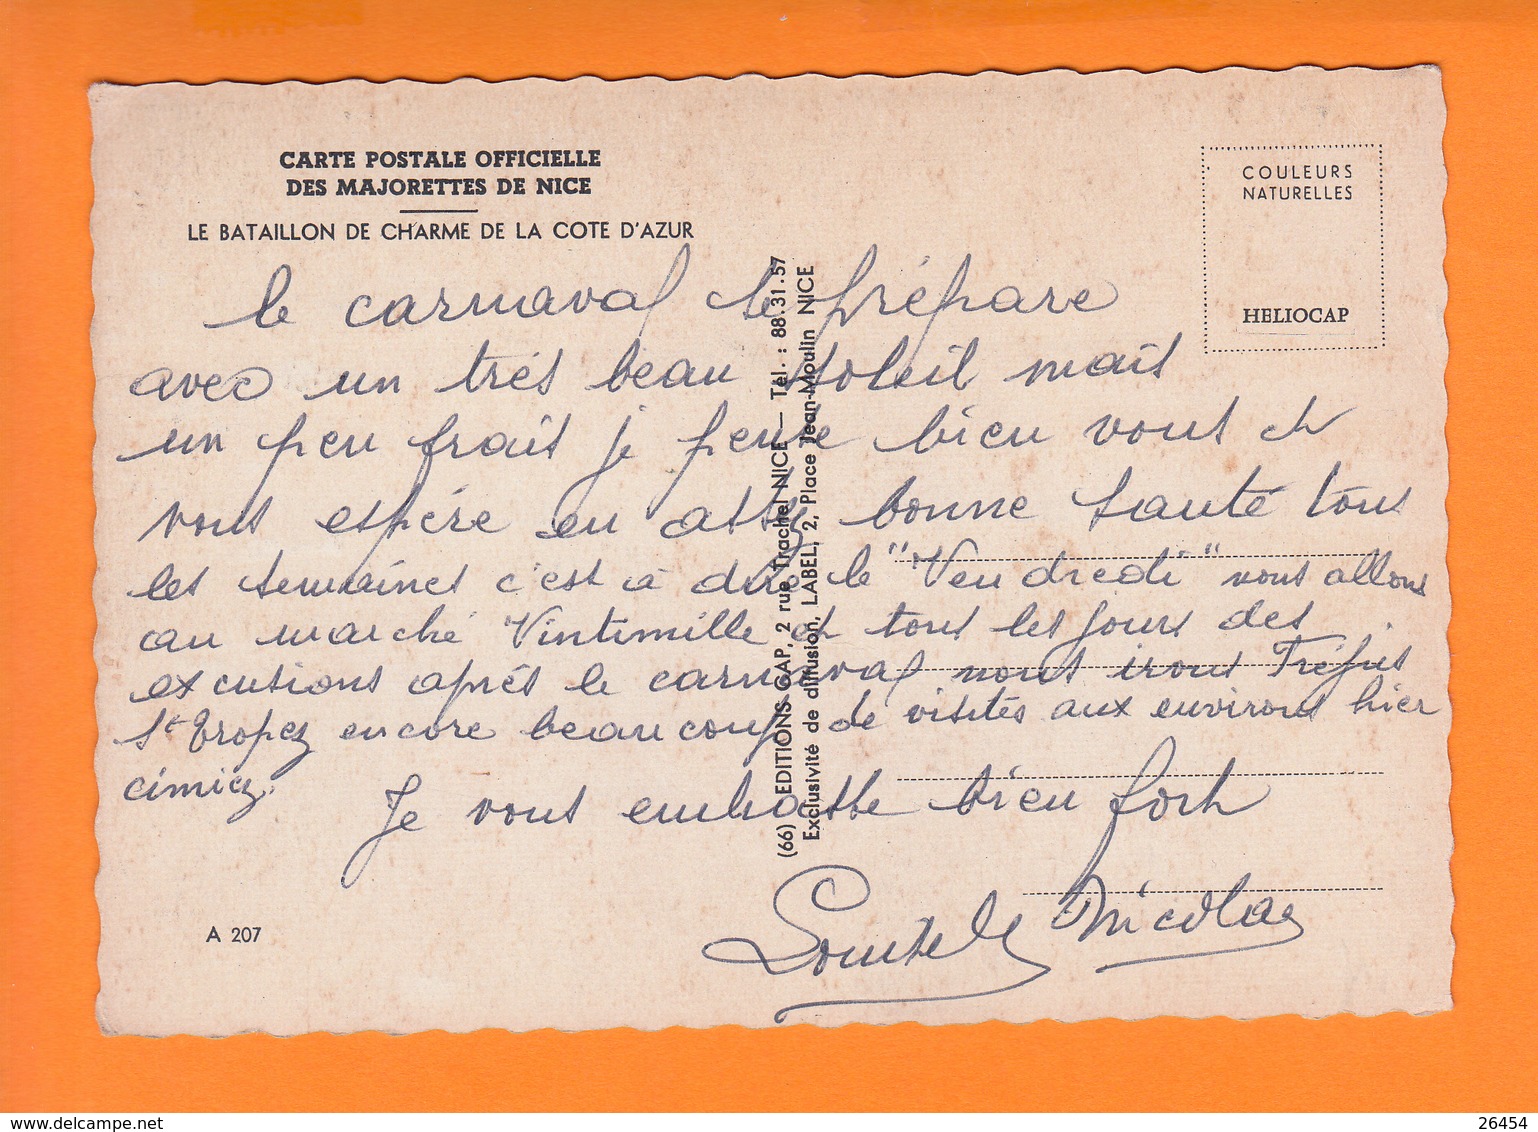 CARTE POSTALE OFFICIELLE
DES MAJORETTES DE NICE
LE BATAILLON DE CHARME DE LA COTE D'AZUR
COULEURS
NATURELLES
HELIOCAP
le carnaval se prépare
avec un très beau soleil mais
un peu frais je pense bien vous et
vous espère en assez bonne santé tous
les semaines c'est à dire le "Vendredi" nous allons
au marché Vintimille et tous les jours des
excusions après le carnaval nous irons Fréjus
St Tropez encore beaucoup de visites aux environs hier
cimiez.
Je vous embrasse bien fort
Nicolas
(66) EDITIONS GAP, 2 rue Trachel NICE — Tél. : 88.31.57
Exclusivité de diffusion, LABEL, 2, Place Jean-Moulin NICE
A 207
www.delcampe.net
26454